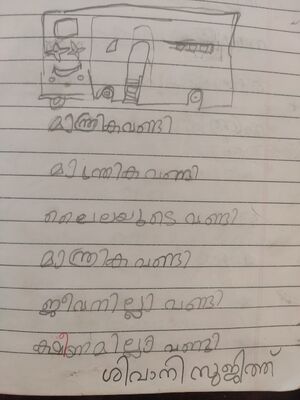 മാന്ത്രികവണ്ടി
മാന്ത്രിക വണ്ടി
ലൈലയുടെ വണ്ടി
മാന്ത്രിക വണ്ടി
ജീവനില്ലാ വണ്ടി
ക്ഷീണമില്ലാ വണ്ടി
ശിവാനി സുജിത്ത്